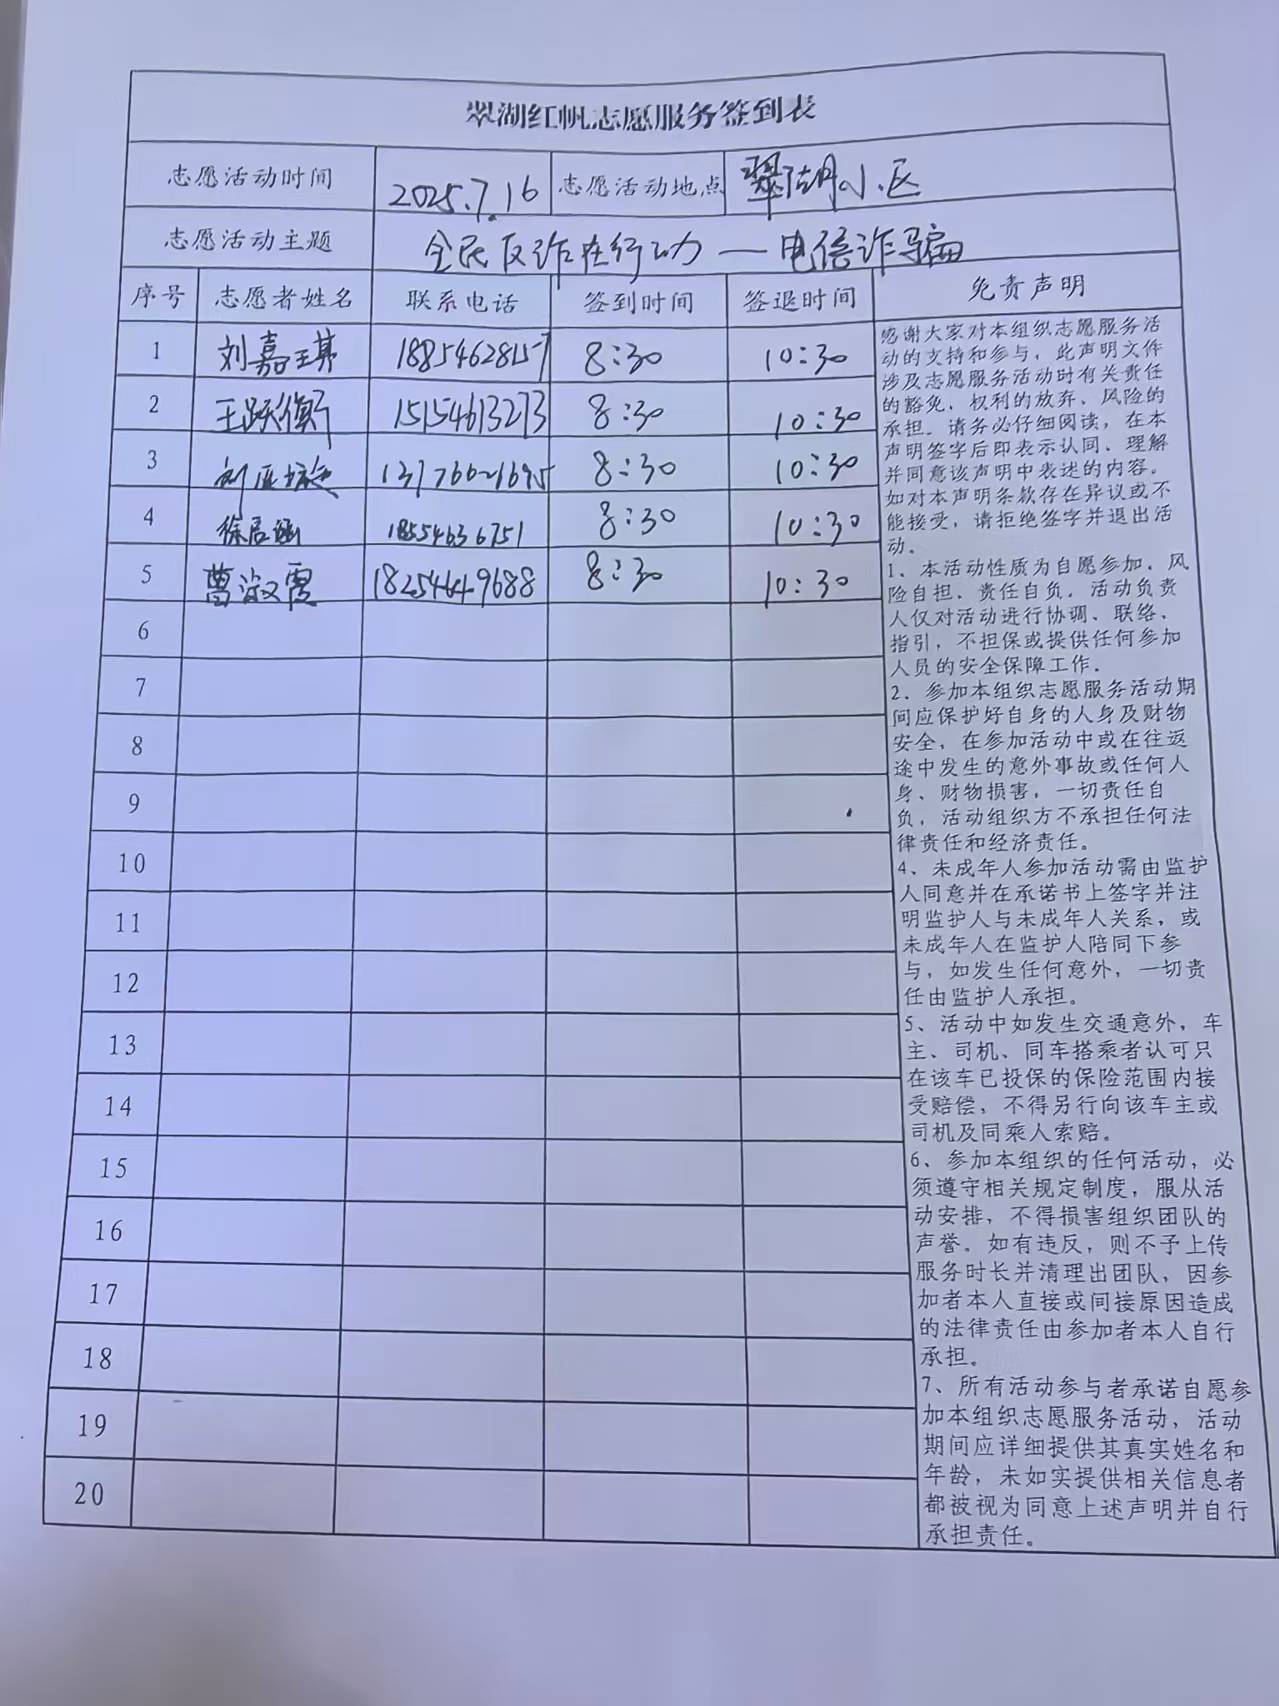 翠湖红帆志愿服务签到表
志愿活动时间 2025.7.16 志愿活动地点 翠湖小区
志愿活动主题 全民反诈在行动 — 电信诈骗
序号 志愿者姓名 联系电话 签到时间 签退时间 免责声明
1 刘嘉琪 18854628157 8:30 10:30
2 王跃衡 15154613273 8:30 10:30
3 8:30 10:30
4 18554636751 8:30 10:30
5 曹淑霞 18254649688 8:30 10:30
6
7
8
9
10
11
12
13
14
15
16
17
18
19
20
感谢大家对本组织志愿服务活
动的支持和参与，此声明文件
涉及志愿服务活动时有关责任
的豁免、权利的放弃、风险的
承担。请务必仔细阅读，在本
声明签字后即表示认同、理解
并同意该声明中表述的内容。
如对本声明条款存在异议或不
能接受，请拒绝签字并退出活
动。
1、本活动性质为自愿参加，风
险自担，责任自负。活动负责
人仅对活动进行协调、联络、
指引，不担保或提供任何参加
人员的安全保障工作。
2、参加本组织志愿服务活动期
间应保护好自身的人身及财物
安全，在参加活动中或在往返
途中发生的意外事故或任何人
身、财物损害，一切责任自
负，活动组织方不承担任何法
律责任和经济责任。
4、未成年人参加活动需由监护
人同意并在承诺书上签字并注
明监护人与未成年人关系，或
未成年人在监护人陪同下参
与，如发生任何意外，一切责
任由监护人承担。
5、活动中如发生交通意外，车
主、司机、同车搭乘者认可只
在该车已投保的保险范围内接
受赔偿，不得另行向该车主或
司机及同乘人索赔。
6、参加本组织的任何活动，必
须遵守相关规定制度，服从活
动安排，不得损害组织团队的
声誉。如有违反，则不予上传
服务时长并清理出团队，因参
加者本人直接或间接原因造成
的法律责任由参加者本人自行
承担。
7、所有活动参与者承诺自愿参
加本组织志愿服务活动，活动
期间应详细提供其真实姓名和
年龄，未如实提供相关信息者
都被视为同意上述声明并自行
承担责任。